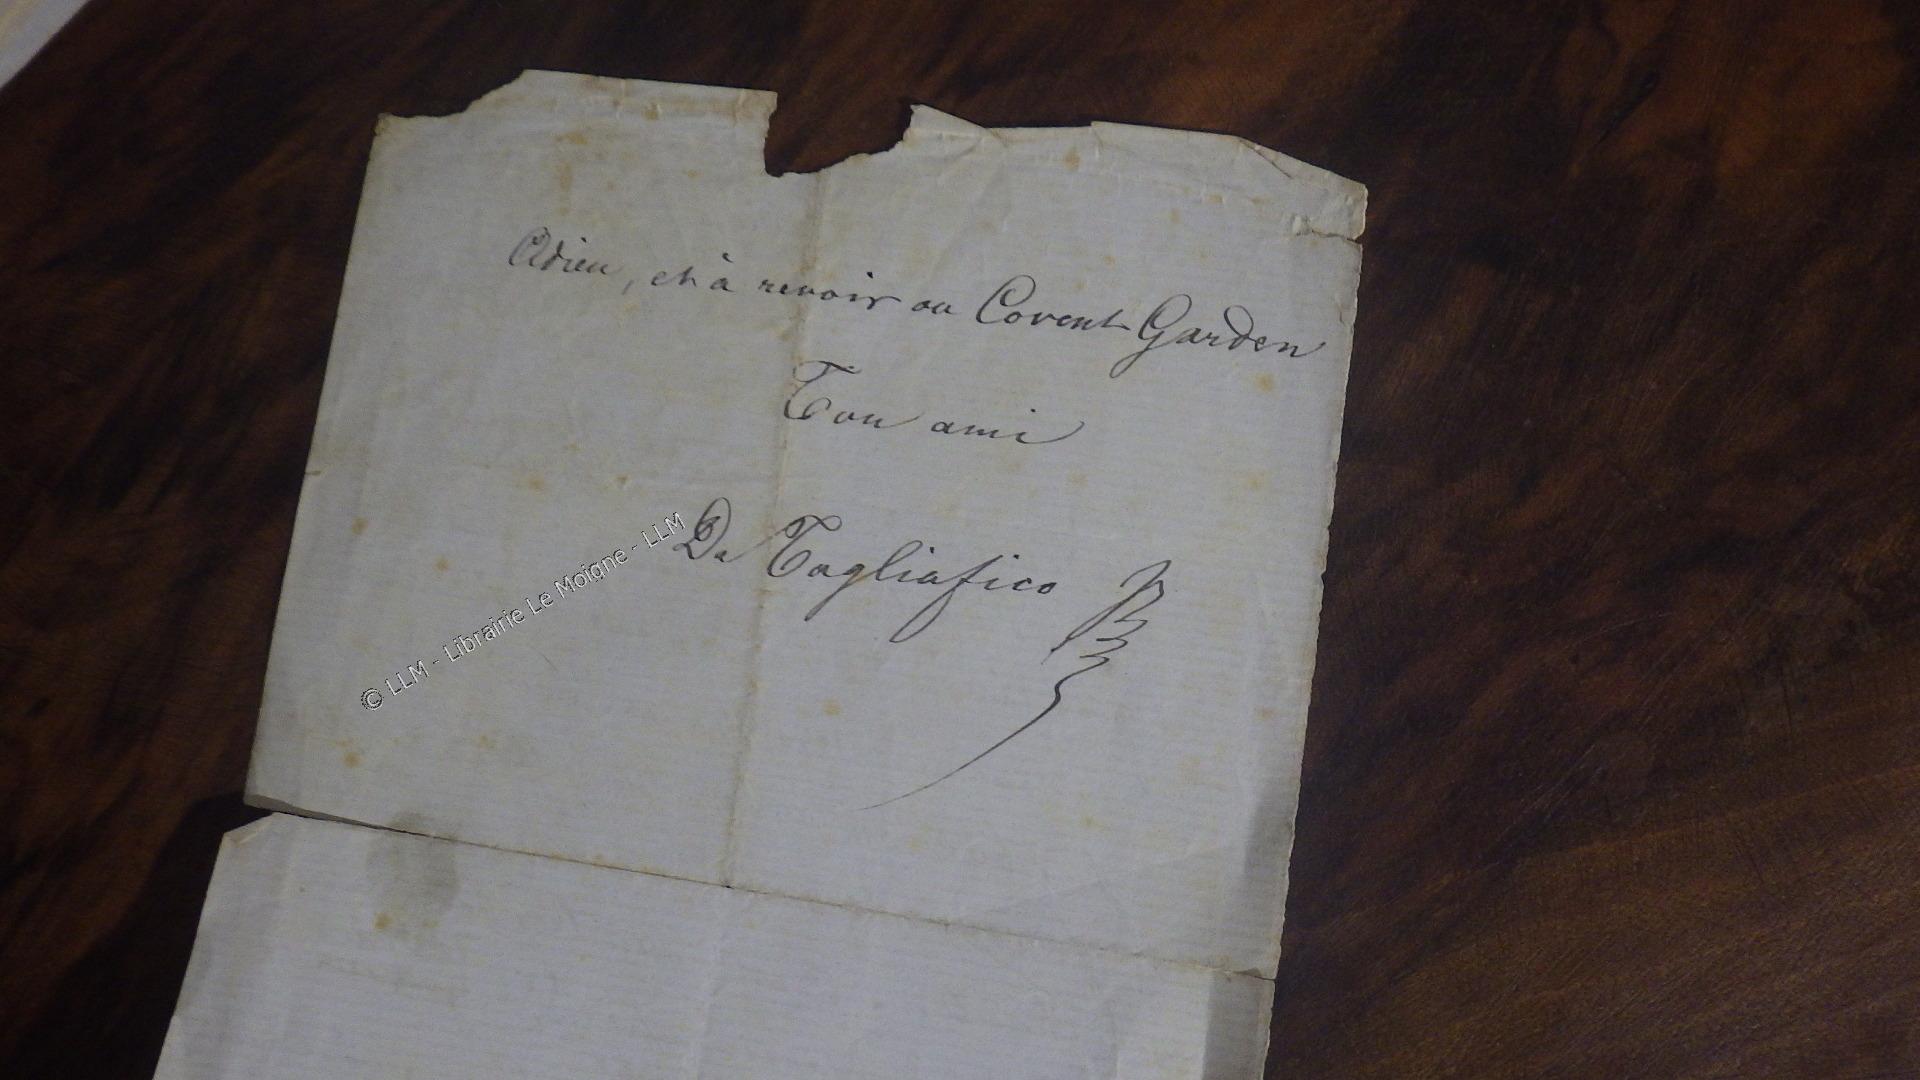 Adieu, et à revoir au Covent Garden
Ton ami
De Tagliafico
© LLM - Librairie Le Moigne - LLM